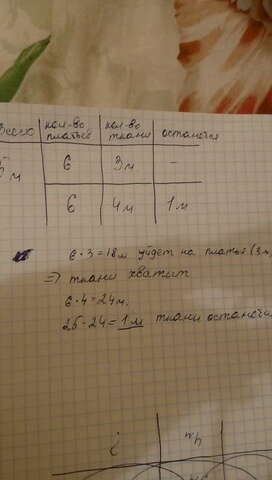 Всего кол-во платьев кол-во ткани останется
м 6 3м -
6 4м 1м
6·3=18м уйдет на платья (3м
=> ткани хватит
6·4=24м,
25-24=1м ткани останется